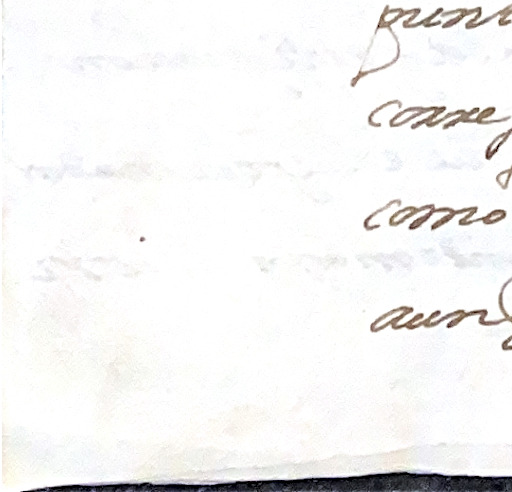 punt
correg
como
aunq